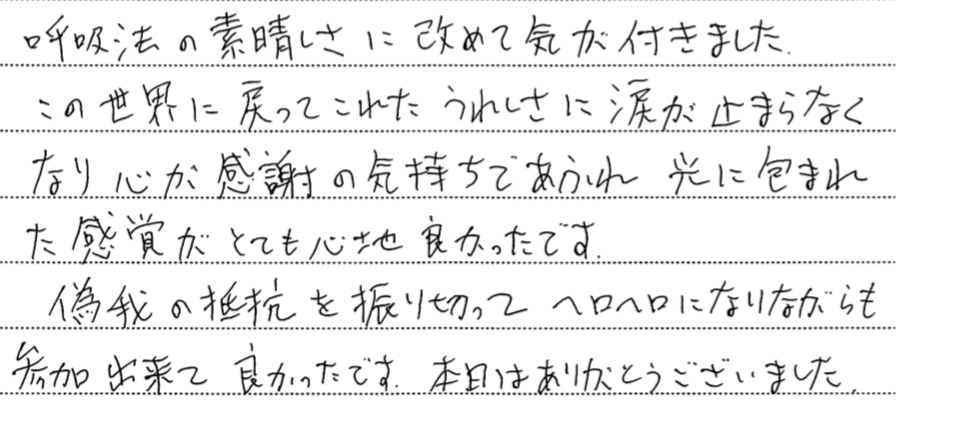 呼吸法の素晴しさに改めて気が付きました.
この世界に戻ってこれたうれしさに涙が止まらなく
なり心が感謝の気持ちであふれ 光に包まれ
た感覚がとても心地良かったです.
偽我の抵抗を振り切ってヘロヘロになりながらも
参加出来て良かったです. 本日はありがとうございました.